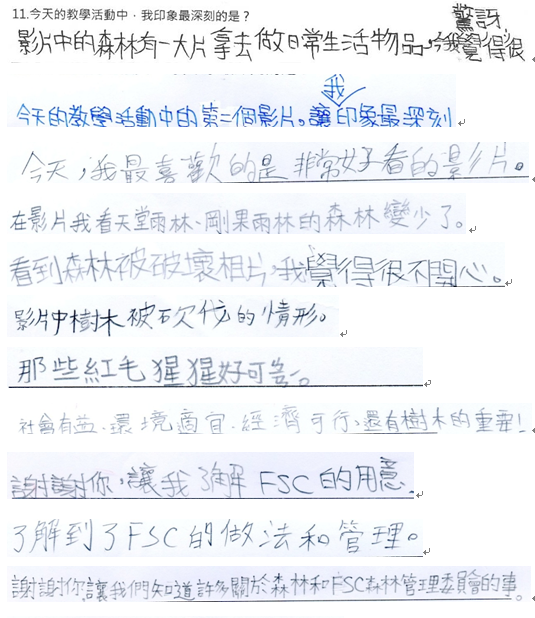 11.今天的教學活動中，我印象最深刻的是？
影片中的森林有一大片拿去做日常生活物品，令我覺得很驚訝
今天的教學活動中的第二個影片。讓我印象最深刻
今天，我最喜歡的是非常好看的影片。
在影片我看天堂雨林、剛果雨林的森林變少了。
看到森林被破壞相片，我覺得很不開心。
影片中樹木被砍伐的情形。
那些紅毛猩猩好可憐。
社會有益、環境適宜、經濟可行，還有樹木的重要！
謝謝你，讓我了解FSC的用意
了解到了FSC的做法和管理。
謝謝你，讓我們知道許多關於森林和FSC森林管理委員會的事。